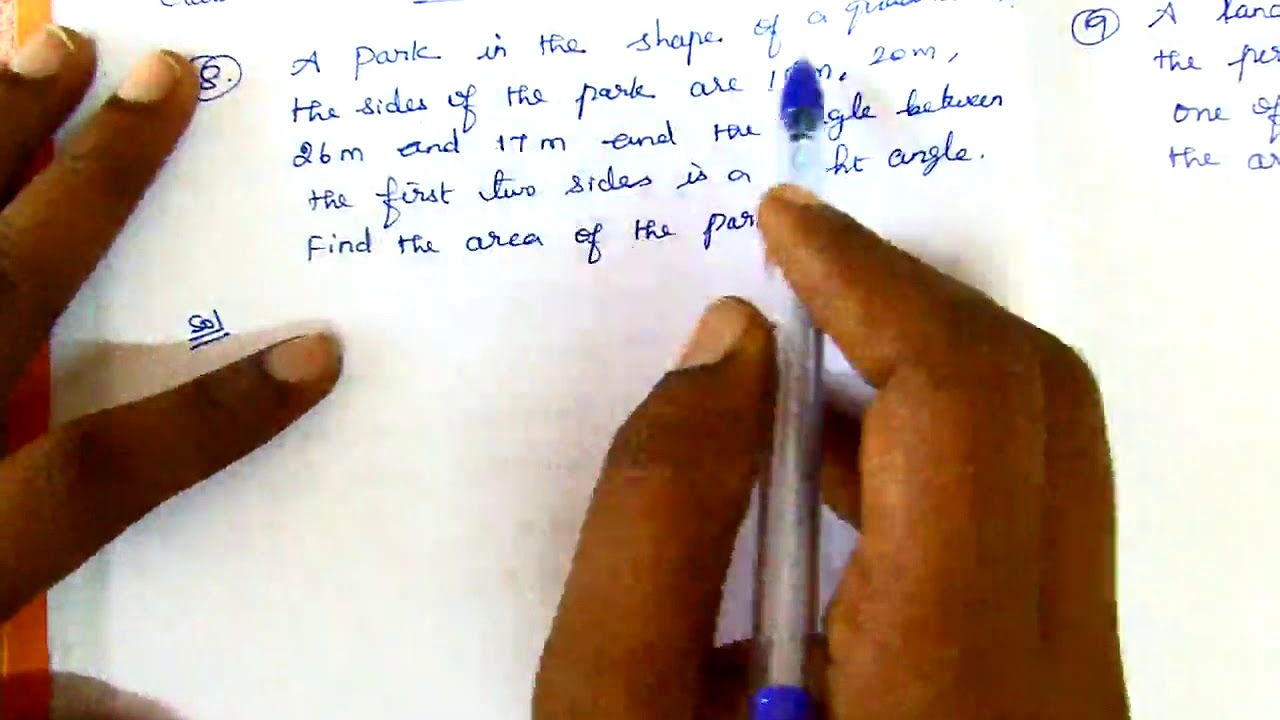 8. A park in the shape of a
the sides of the park are m, 20m,
26m and 17m and the between
the first two sides is a angle.
Find the area of the
Sol
9 A
the
one of
the